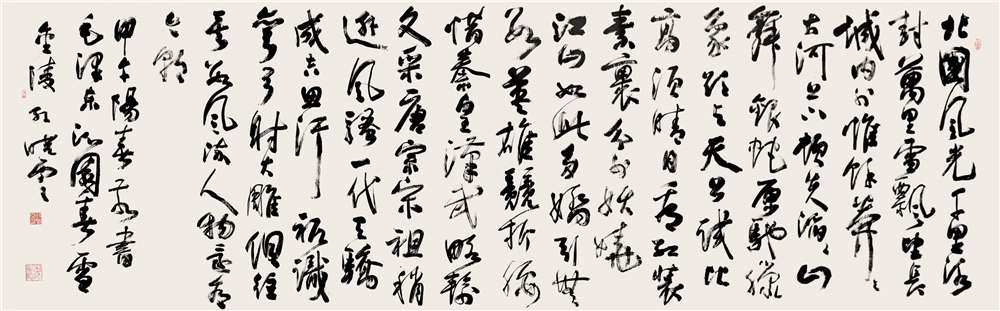 北國風光千里冰
封萬里雪飄望長
城内外惟餘莽〻
大河上下頓失滔〻山
舞銀蛇原馳蠟
象欲與天公試比
高須晴日看紅裝
素裹分外妖嬈
江山如此多嬌引無
數英雄競折腰
惜秦皇漢武略輸
文采唐宗宋祖稍
遜風騷一代天驕
成吉思汗祇識
彎弓射大雕俱往
矣數風流人物還看
今朝
甲午陽春書
毛澤東沁園春雪
金陵孔曉雲